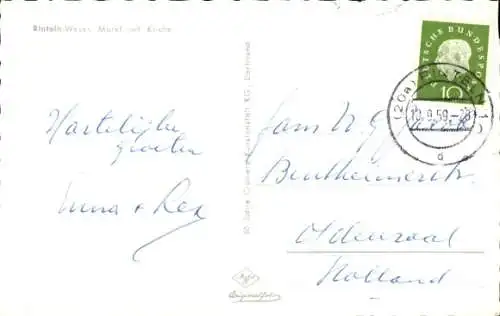 Rinteln-Weser, Markt mit Kirche
Hartelijke
groeten
+ Rex
50 Jahre Cramers Kunstanstalt KG., Dortmund
Agfa
Originalfoto
DEUTSCHE BUNDESPOST
10
(20a) RINTELN 1
10.9.59
d
Bentheimerstr.
Oldenzaal
Holland